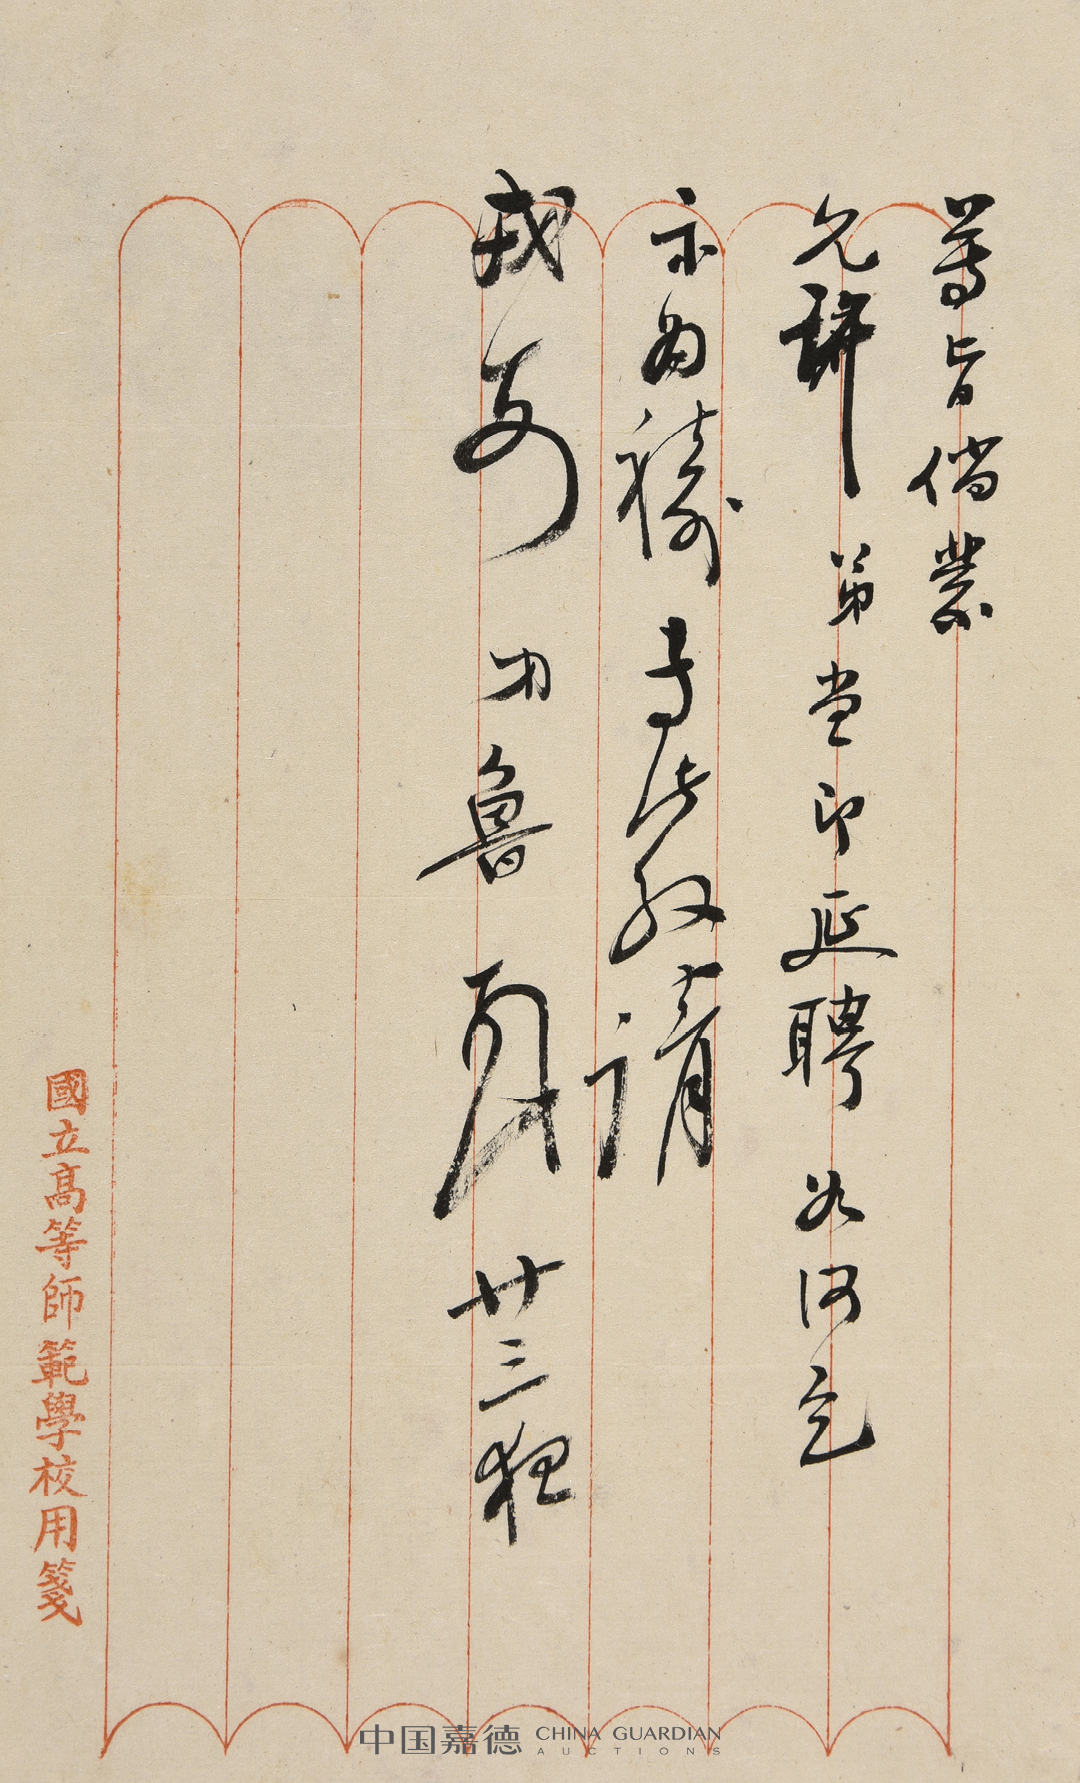 尊旨倘蒙
允許弟當即延聘如何乞
示為禱專此敬請
安弟魯頓廿三夜
國立高等師範學校用箋
中国嘉德 CHINA GUARDIAN
AUCTIONS